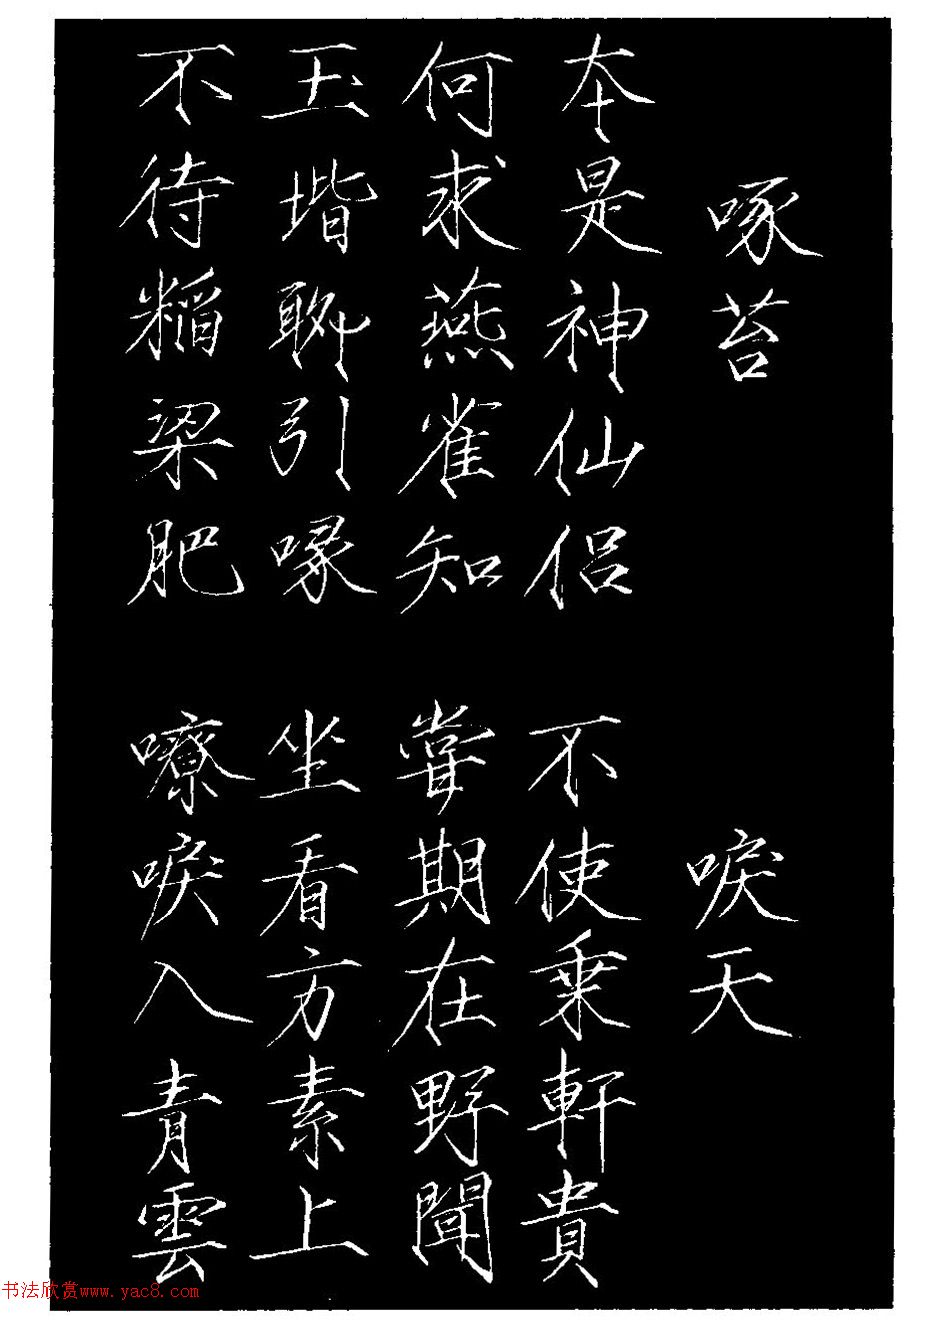 啄苔
本是神仙侶
何求燕雀知
玉堦聊引啄
不待稻粱肥
唳天
不使乗軒貴
甞期在野聞
坐看方素上
嘹唳入青雲
书法欣赏www.yac8.com